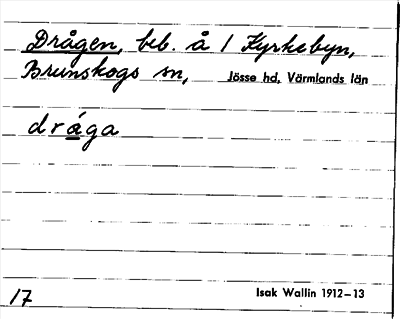 Drågen, beb. å 1 Kyrkebyn,
Brunskogs sn, Jösse hd, Värmlands län
drága
17
Isak Wallin 1912–13